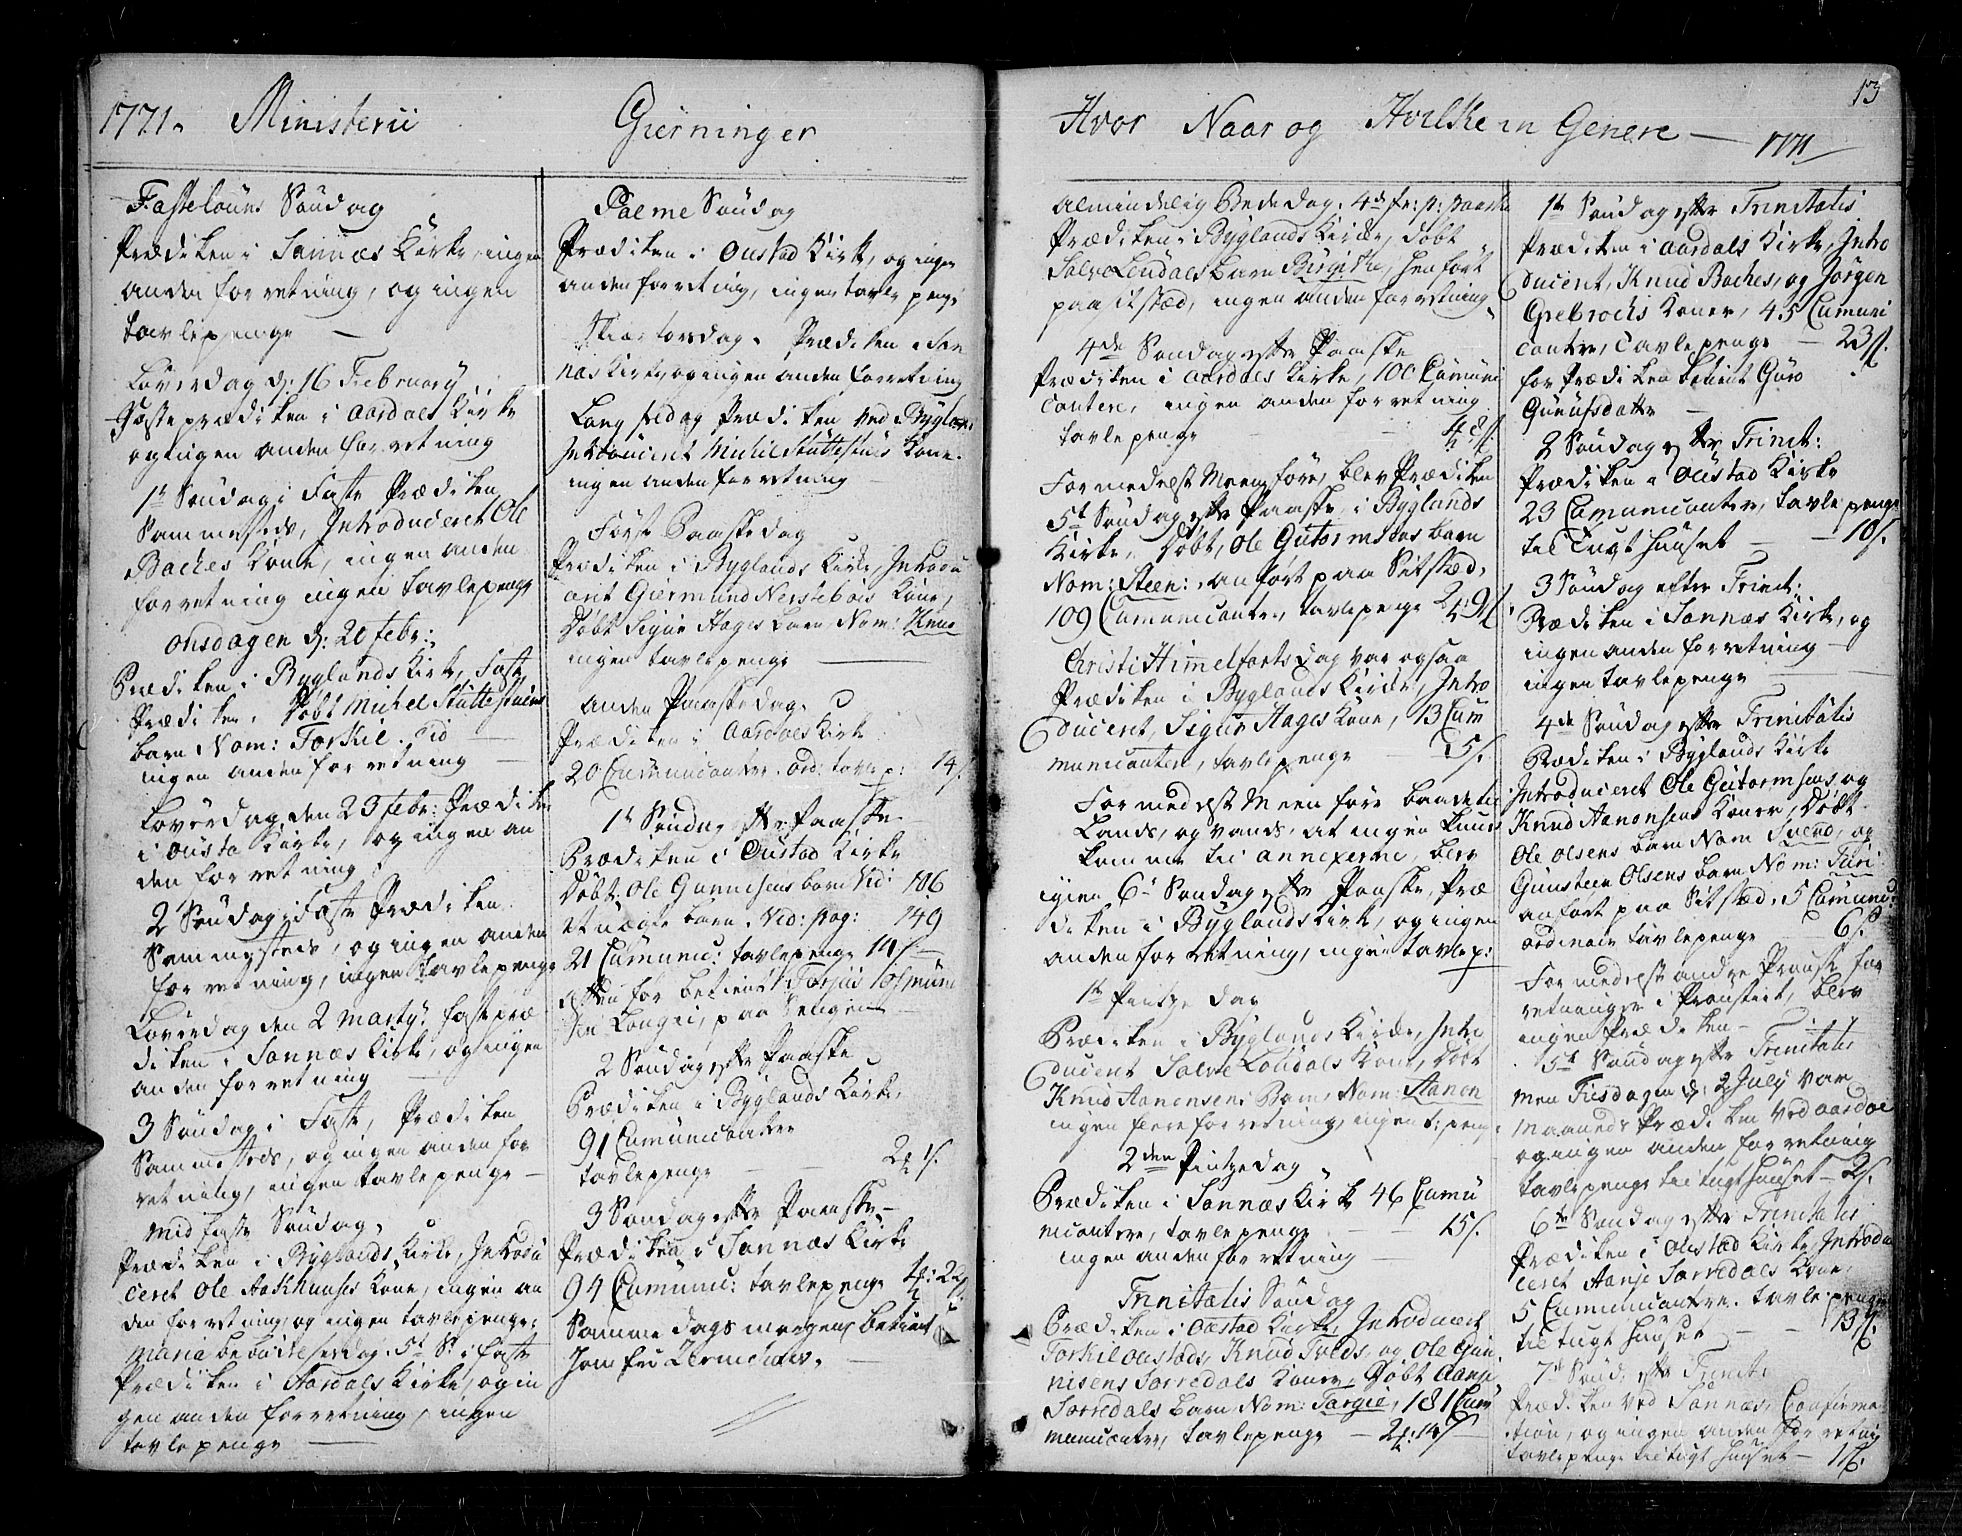 1771. Ministerii Gierninger
Fastelauns Søndag
Prædiken i Sannæs Kirke, ingen
anden forretning, og ingen
tavlepenge
Løverdag d: 16 February
Fasteprædiken i Aardals Kirke
og ingen anden forretning
1te Søndag i Faste Prædiken
Sammesteds, Introduceret Ole
Baches Kone, ingen anden
forretning ingen tavlepenge
Onsdagen d: 20 Febr:
Prædiken i Byglands Kirke, Faste
Prædiken. Døbt Michel
barn Nom: Torkil.
ingen anden forretning
Løverdag den 23 febr: Prædiken
i Ousta Kirke, og ingen an
den forretning
2 Søndag i Faste Prædiken
Sammesteds, og ingen anden
forretning, ingen tavlepenge
Løverdag den 2 Marty, fastepræ
diken i Sannæs Kirke, og ingen
anden forretning
3 Søndag i Faste, Prædiken
Sammesteds, og ingen anden for
retning, ingen tavlepenge
Mid faste Søndag,
Prædiken i Byglands Kirke, Introdu
ceret Ole Aakhuuses Kone, ingen an
den forretning og ingen tavlepenge.
Maria bebudelsesdag. 5te S: i faste
Prædiken i Aardals Kirke, og in
gen anden forretning, ingen
tavlepenge
Palme Søndag
Prædiken i Oustad Kirke, og ingen
anden forretning, ingen tavlepenge
Skiærtorsdag. Prædiken i San
næs Kirke, og ingen anden forretning
Langfredag Prædiken ved Bygland
Introduceret Michel Kone.
ingen anden forretning
Første Paaskedag
Prædiken i Byglands Kirke, Introdu
cirt Giermund Nersteboes Kone,
Døbt Sigur Hages Barn Nom: Knud
ingen tavlepenge
Anden Paaskedag.
Prædiken i Aardals Kirke
20 Cumunicantere. ord: tavlep: 14s.
1te Søndag efter Paaske
Prædiken i Oustad Kirke
Døbt Ole Gunnisens barn Vid: 186
Et uægte barn. Vid: pag: 149
21 Cumunic: tavlepenge 14s
2 Søndag efter Paaske
Prædiken i Byglands Kirke,
91 Cumunicantere
tavlepenge 2 1s.
3 Søndag efter Paaske
Prædiken i Sannæs Kirke
94 Cumunic: tavlepenge 4: 22s.
Samme dags morgen betient
Jomfru
Hvor Naar og Hvilken Genere 1771
13
Almindelig Bededag. 4de fr: p: Paaske
Prædiken i Byglands Kirke, Døbt
Salve Lendals Barn Birgithe, henført
paa sit stæd, ingen anden forretning
4de Søndag efter Paaske
Prædiken i Aardals Kirke, 100 Cumuni
cantere, ingen anden forretning
tavlepenge 4 8s.
Formedelst Meenføre, blev Prædiken
5te Søndag efter Paaske, i Byglands
Kirke. Døbt, Ole Gutormsens barn
Nom: Steen: anført paa Sitstæd,
109 Cumunicantere, tavlepenge 2: 9s
Christi Himmelfarts dag var ogsaa
Prædiken i Byglands Kirke, Intro
ducert, Sigur Hages Kone, 13 Cum
municantere, tavlepenge 5s.
Formedelst Meenføre baade til
Lands, og vands, at ingen kunde
komme til annexerne, blev
igien 6te Søndag efter Paaske, Præ
diken i Byglands Kirke, og ingen
anden forretning, ingen tavlep:
1te Pintze dag
Prædiken i Byglands Kirke, Intro
ducert Salve Lendals Kone, Døbt
Knud Aanensens Barn, Nom: Aanen
ingen flere forretning, ingen t: penge
2den Pintzedag
Prædiken i Sannæs Kirk 46 Cumu
nicantere, tavlepenge 15s.
ingen anden forretning
Trinitatis Søndag
Prædiken i Oustad Kirke, Introduceret
Torkil Oustads, Knud Tveds, og Ole Gun
nisens Sorredals Koner, Døbt Aanje
Sorredals Barn Nom: Targie, 181 Cum
municantere, tavlepenge 2: 14s
1te Søndag efter Trinitatis
Prædiken i Aardals Kirke, Intro
ducert, Knud Baches, og Jørgen
Grebrochs Koner, 45 Cumuni
cantere, Tavlepenge 23s.
for Prædiken betient Guro
2 Søndag efter Trinit:
Prædiken i Oustad Kirke
23 Cumunicantere, tavlepenge
til Tugthuuset 10s.
3 Søndag efter Trinit.
Prædiken i Sannæs Kirke, og
ingen anden forretning
ingen tavlepenge
4de Søndag efter Trinitatis
Prædiken i Byglands Kirke
Introduceret Ole Gutormsens og
Knud Aanonsens Koner, Døbt
Ole Olsens barn Nom Svend, og
Gunsteen Olsens barn Nom: Turi
anført paa Sitstæd, 5 Cumunic:
ordinair tavlepenge 6s.
Formedelst andre Prouste for
retninger i Proustiet, blev
ingen Prædiken
5te Søndag efter Trinitatis
Men Tiisdagen d: 2 July var
Maaneds Prædiken ved Aardal
og ingen anden forretning
tavlepenge til tugthuuset 2s.
6te Søndag efter Trinitatis
Prædiken i Oustad Kirke Introdu
ceret Aanje Sorredals Kone,
5 Cumunicantere. tavlepenge
til tugthuuset 13s.
7de Sønd: efter Trinit:
Prædiken ved Sannæs, Confirma
tion, og ingen anden forretning
tavlepenge til tugthuuset 16.